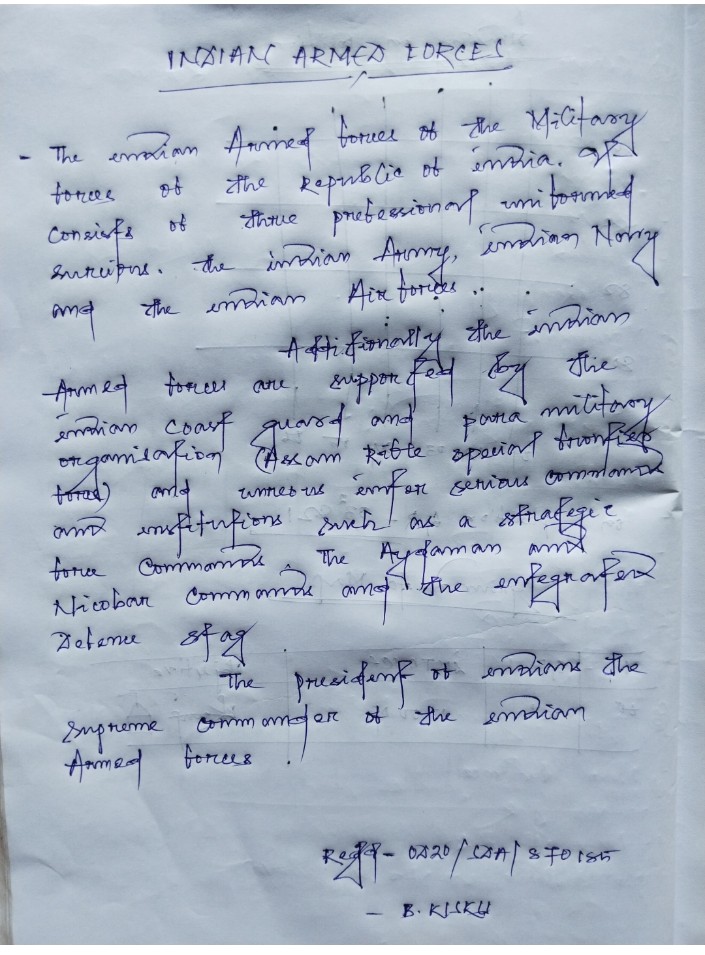 INDIAN ARMED FORCES
- The indian Armed forces of the Military
forces of the Republic of india. It
consists of three professional uniformed
services. the indian Army, indian Navy
and the indian Air forces ..
Additionally the indian
Armed forces are supported by the
indian coast guard and para military
organisation (Assam Rifle special frontier
force) and inter service commands
and institutions such as a strategic
force Commands, The Andaman and
Nicobar Commands and the integrated
Defence staff
The president of indians the
supreme commander of the indian
Armed forces .
Regd - OD20/SDA/870185
- B. KISKU